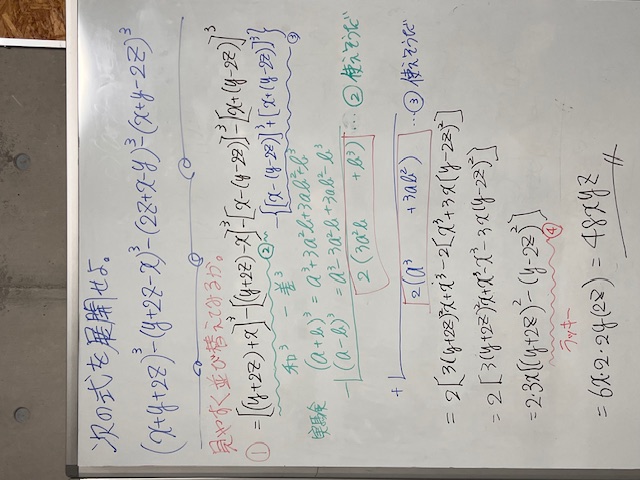 次の式を展開せよ。
(x+y+2z)³-(y+2z-x)³-(2z+x-y)³-(x+y-2z)³
見やすく並び替えてみるか。
① =[(y+2z)+x]³-[(y+2z)-x]³-[x-(y-2z)]³-[x+(y-2z)]³
② -{[x-(y-2z)]³+[x+(y-2z)]³}
③
和³ - 差³
実験 (a+b)³=a³+3a²b+3ab²+b³
-) (a-b)³=a³-3a²b+3ab²-b³
2(3a²b +b³) …②使えそうだ
+)
2(a³ +3ab²) …③使えそうだ
=2[3(y+2z)²x+x³]-2[x³+3x(y-2z)²]
=2[3(y+2z)²x+x³-x³-3x(y-2z)²]
=2・3x[(y+2z)²-(y-2z)²]
④
ラッキー
=6x・2・2y(2z)=48xyz